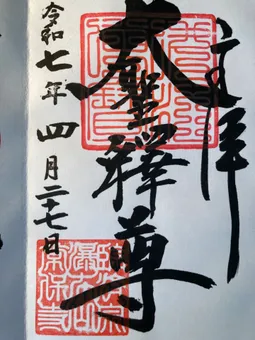 奉拝
大聖釋尊
令和七年四月二十七日